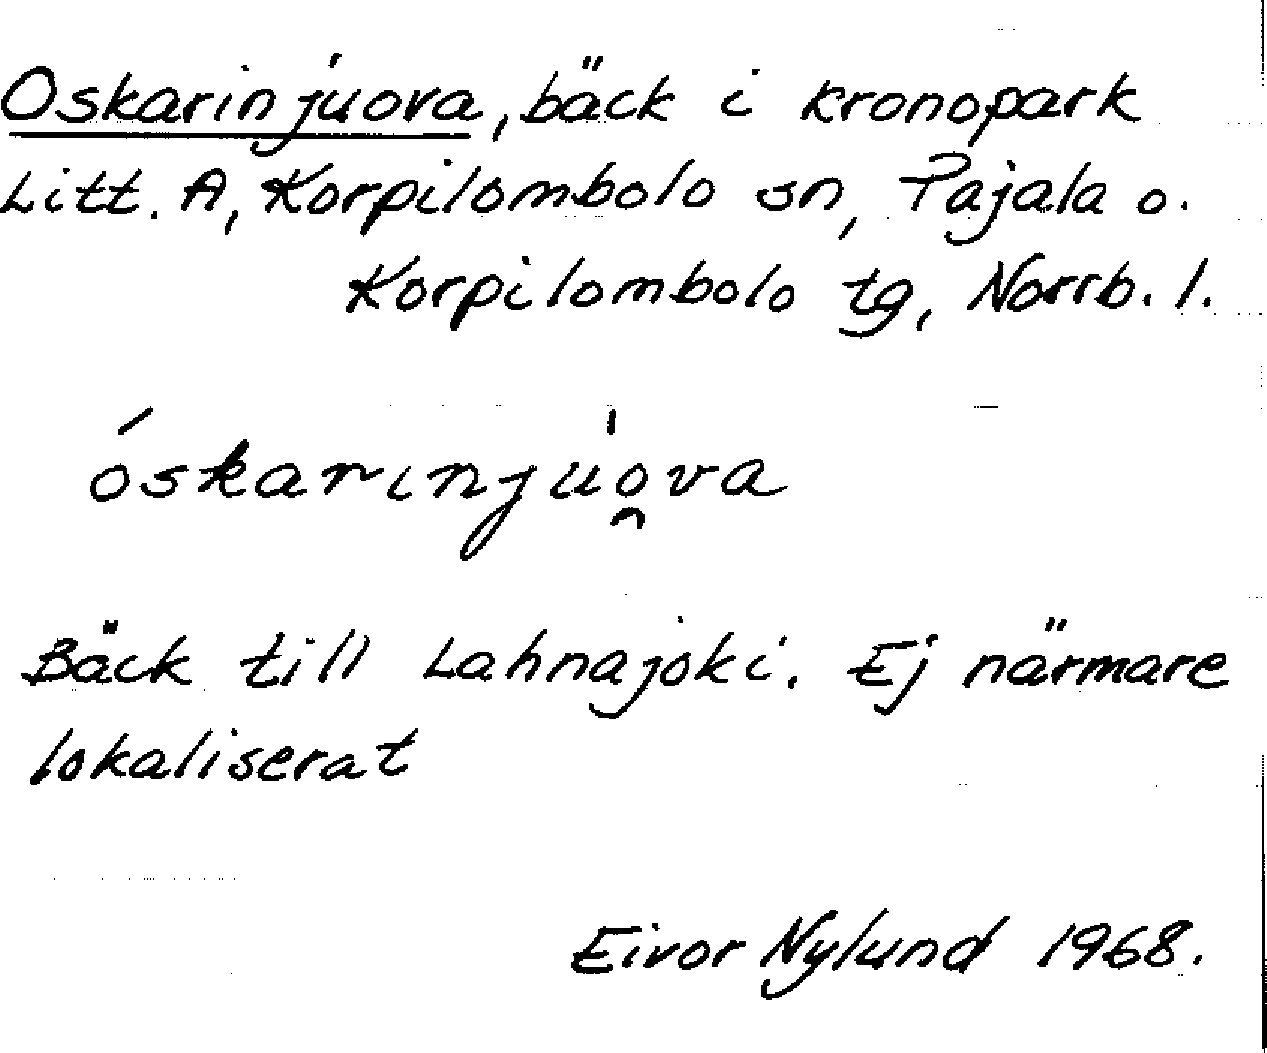 Oskarinjuova, bäck i kronopark
Litt. A, Korpilombolo sn, Pajala o.
Korpilombolo tg, Norrb. l.
óskarinju̍o̯va
Bäck till Lahnajoki. Ej närmare
lokaliserat
Eivor Nylund 1968.